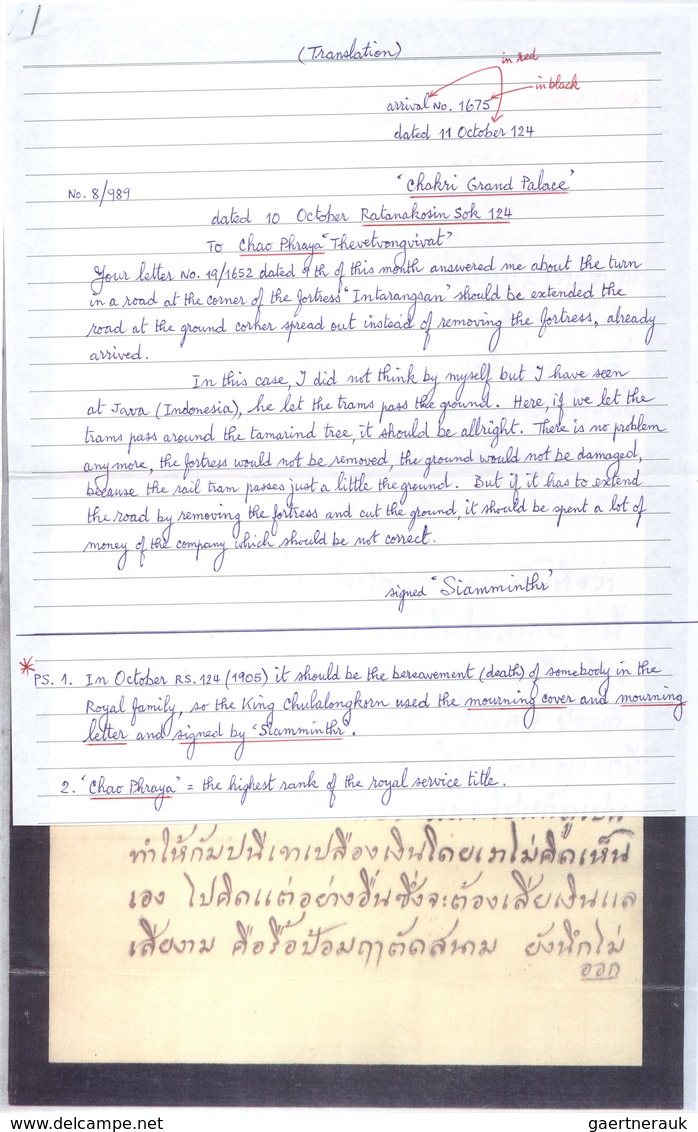 (Translation)
in red
in black
arrival No. 1675
dated 11 October 124
"Chakri Grand Palace"
No. 8/989
dated 10 October Ratanakosin Sok 124
To Chao Phraya "Thevetvongvivat"
Your letter No. 19/1652 dated 9th of this month answered me about the turn
in a road at the corner of the fortress "Intarangsan" should be extended the
road at the ground corner spread out instead of removing the fortress, already
arrived.
In this case, I did not think by myself but I have seen
at Java (Indonesia), he let the trams pass the ground. Here, if we let the
trams pass around the tamarind tree, it should be allright. There is no problem
anymore, the fortress would not be removed, the ground would not be damaged,
because the rail tram passes just a little the ground. But if it has to extend
the road by removing the fortress and cut the ground, it should be spent a lot of
money of the company which should be not correct.
signed "Siamminthr"
* PS. 1. In October RS. 124 (1905) it should be the bereavement (death) of somebody in the
Royal family, so the King Chulalongkorn used the mourning cover and mourning
letter and signed by "Siamminthr".
2. "Chao Phraya" = the highest rank of the royal service title.
ทำให้กัมปนีเขาเปลืองเงินโดยเราไม่คิดเห็น
เอง ไปคิดแต่อย่างอื่นซึ่งจะต้องเสียเงินแล
เสียงาม คือรื้อป้อมฤๅตัดสนาม ยังนึกไม่
ออก
www.delcampe.net
gaertnerauk